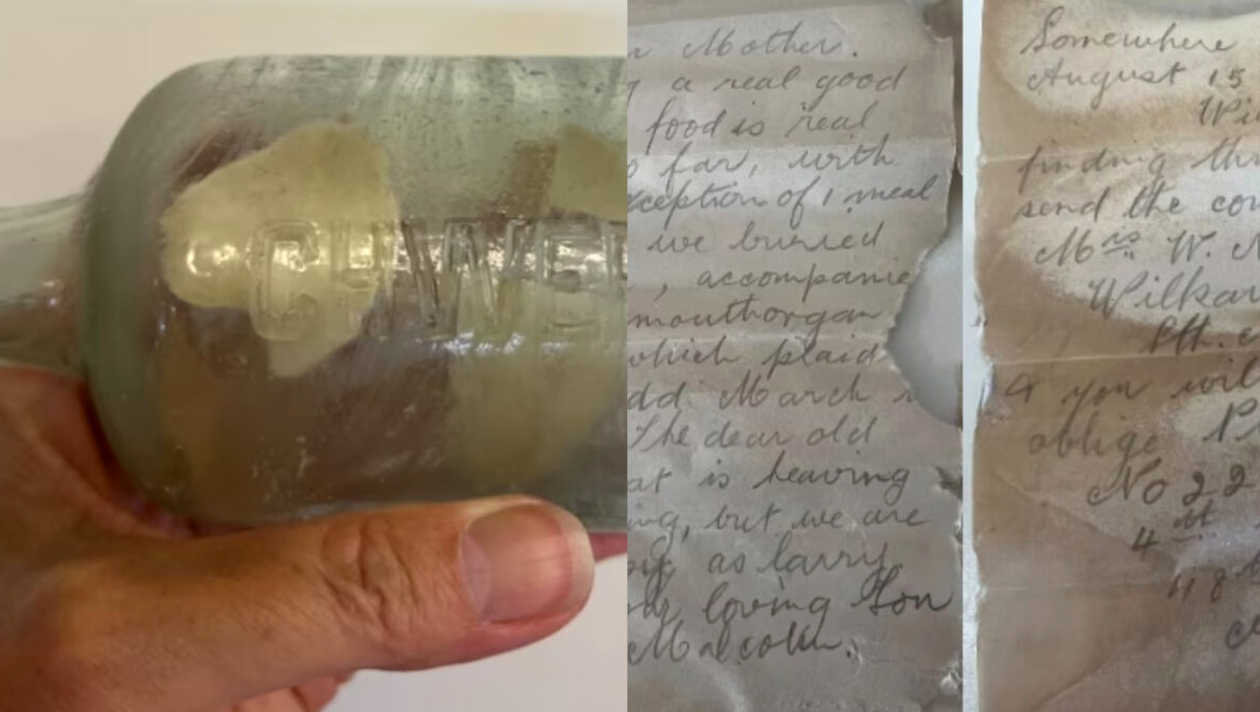 CHWE
Mother.
a real good
food is real
far, with
xception of 1 meal
we buried
, accompanie
mouthorgan
which plaid
dd March
The dear old
at is heaving
ing, but we are
as larry.
loving Son
Malcolm.
Somewhere
August 15
Wi
finding th
send the co
Mrs W. N
Wilkaw
Sth.
& you wil
oblige P
No 22
4th
48